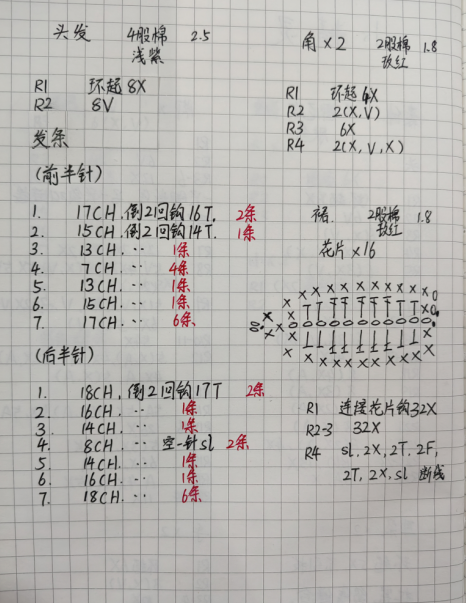 头发 4股棉 2.5
浅紫
R1 环起 8X
R2 8V
发条
(前半针)
1. 17CH.倒2回钩16T. 2条
2. 15CH.倒2回钩14T. 1条
3. 13CH. ·· 1条
4. 7CH. ·· 4条
5. 13CH. ·· 1条
6. 15CH. ·· 1条
7. 17CH. ·· 6条
(后半针)
1. 18CH.倒2回钩17T 2条
2. 16CH. ·· 1条
3. 14CH. ·· 1条
4. 8CH. ·· 空一针sl 2条
5. 14CH. ·· 1条
6. 16CH. ·· 1条
7. 18CH. ·· 6条
角×2 2股棉 1.8
玫红
R1 环起 4X
R2 2(X,V)
R3 6X
R4 2(X,V,X)
裙. 2股棉 1.8
玫红
花片×16
R1 连接花片钩32X
R2-3 32X
R4 sl.2X,2T.2F,
2T,2X,sl 断线